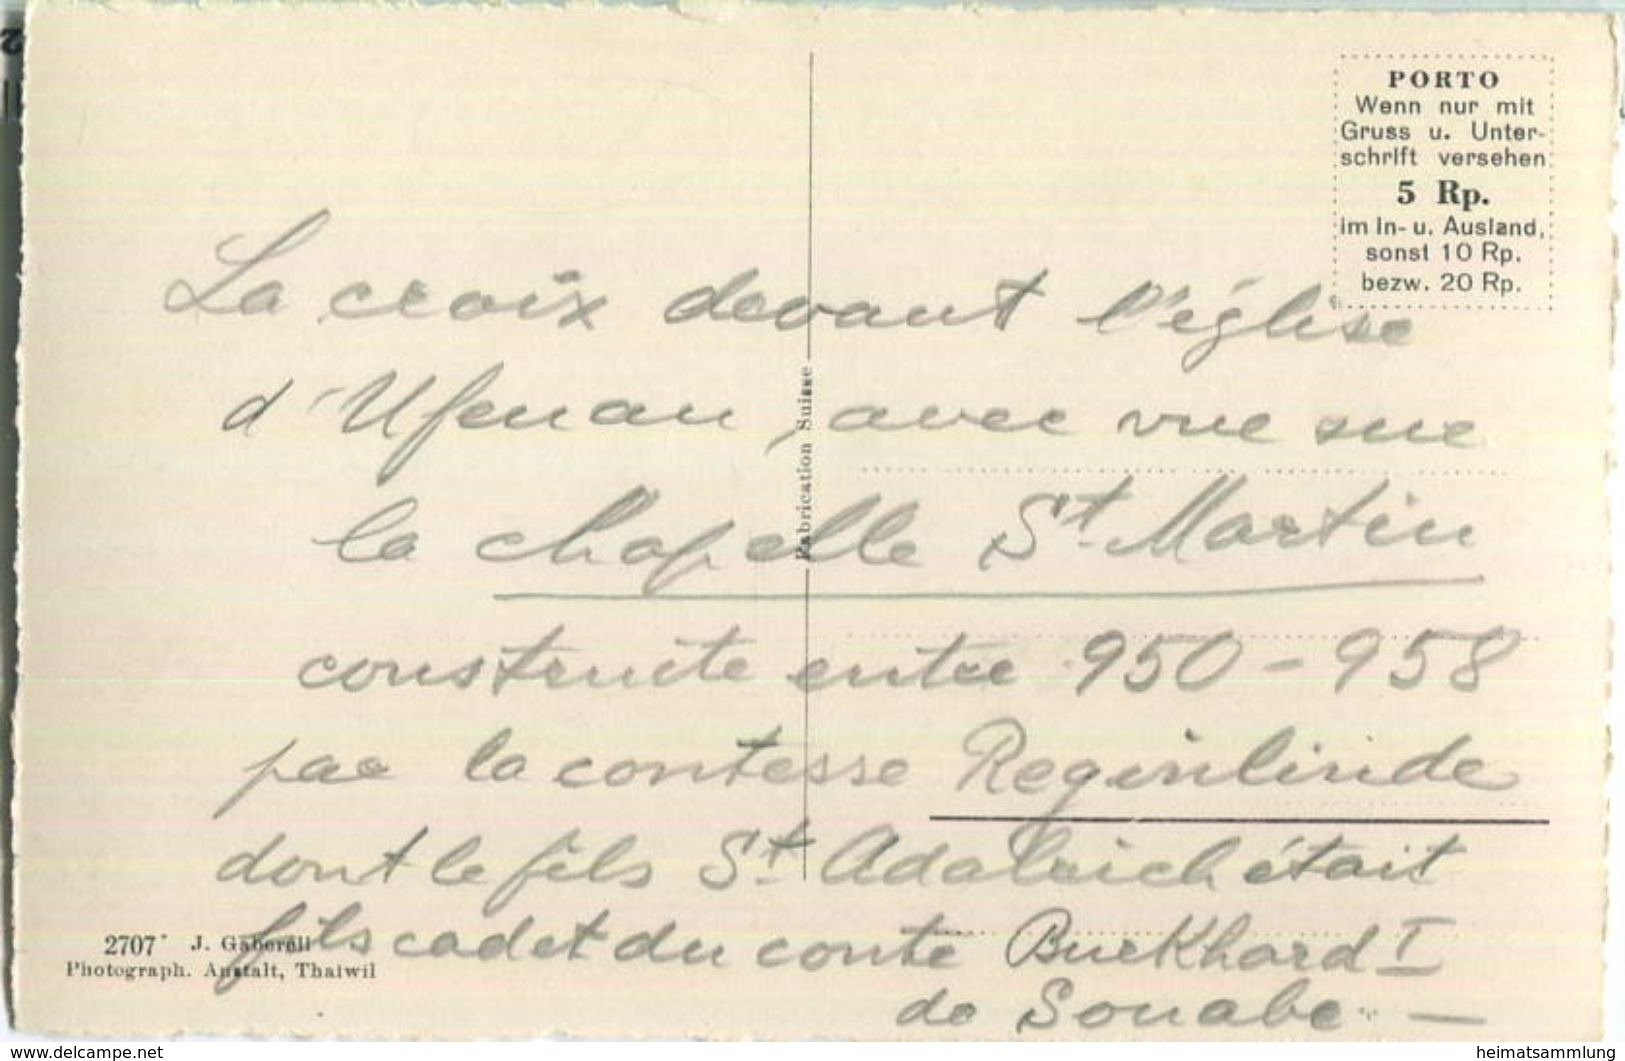 PORTO
Wenn nur mit
Gruss u. Unter-
schrift versehen
5 Rp.
im In- u. Ausland,
sonst 10 Rp.
bezw. 20 Rp.
La croix devant l'église
d'Ufenau, avec vue sur
la chapelle St. Martin
construite entre 950 - 958
par la contesse Reginlinde
dont le fils St. Adalrich était
fils cadet du conte Burkhard I
de Souabe. —
Fabrication Suisse
2707 J. Gaberell
Photograph. Anstalt, Thalwil
www.delcampe.net
heimatsammlung